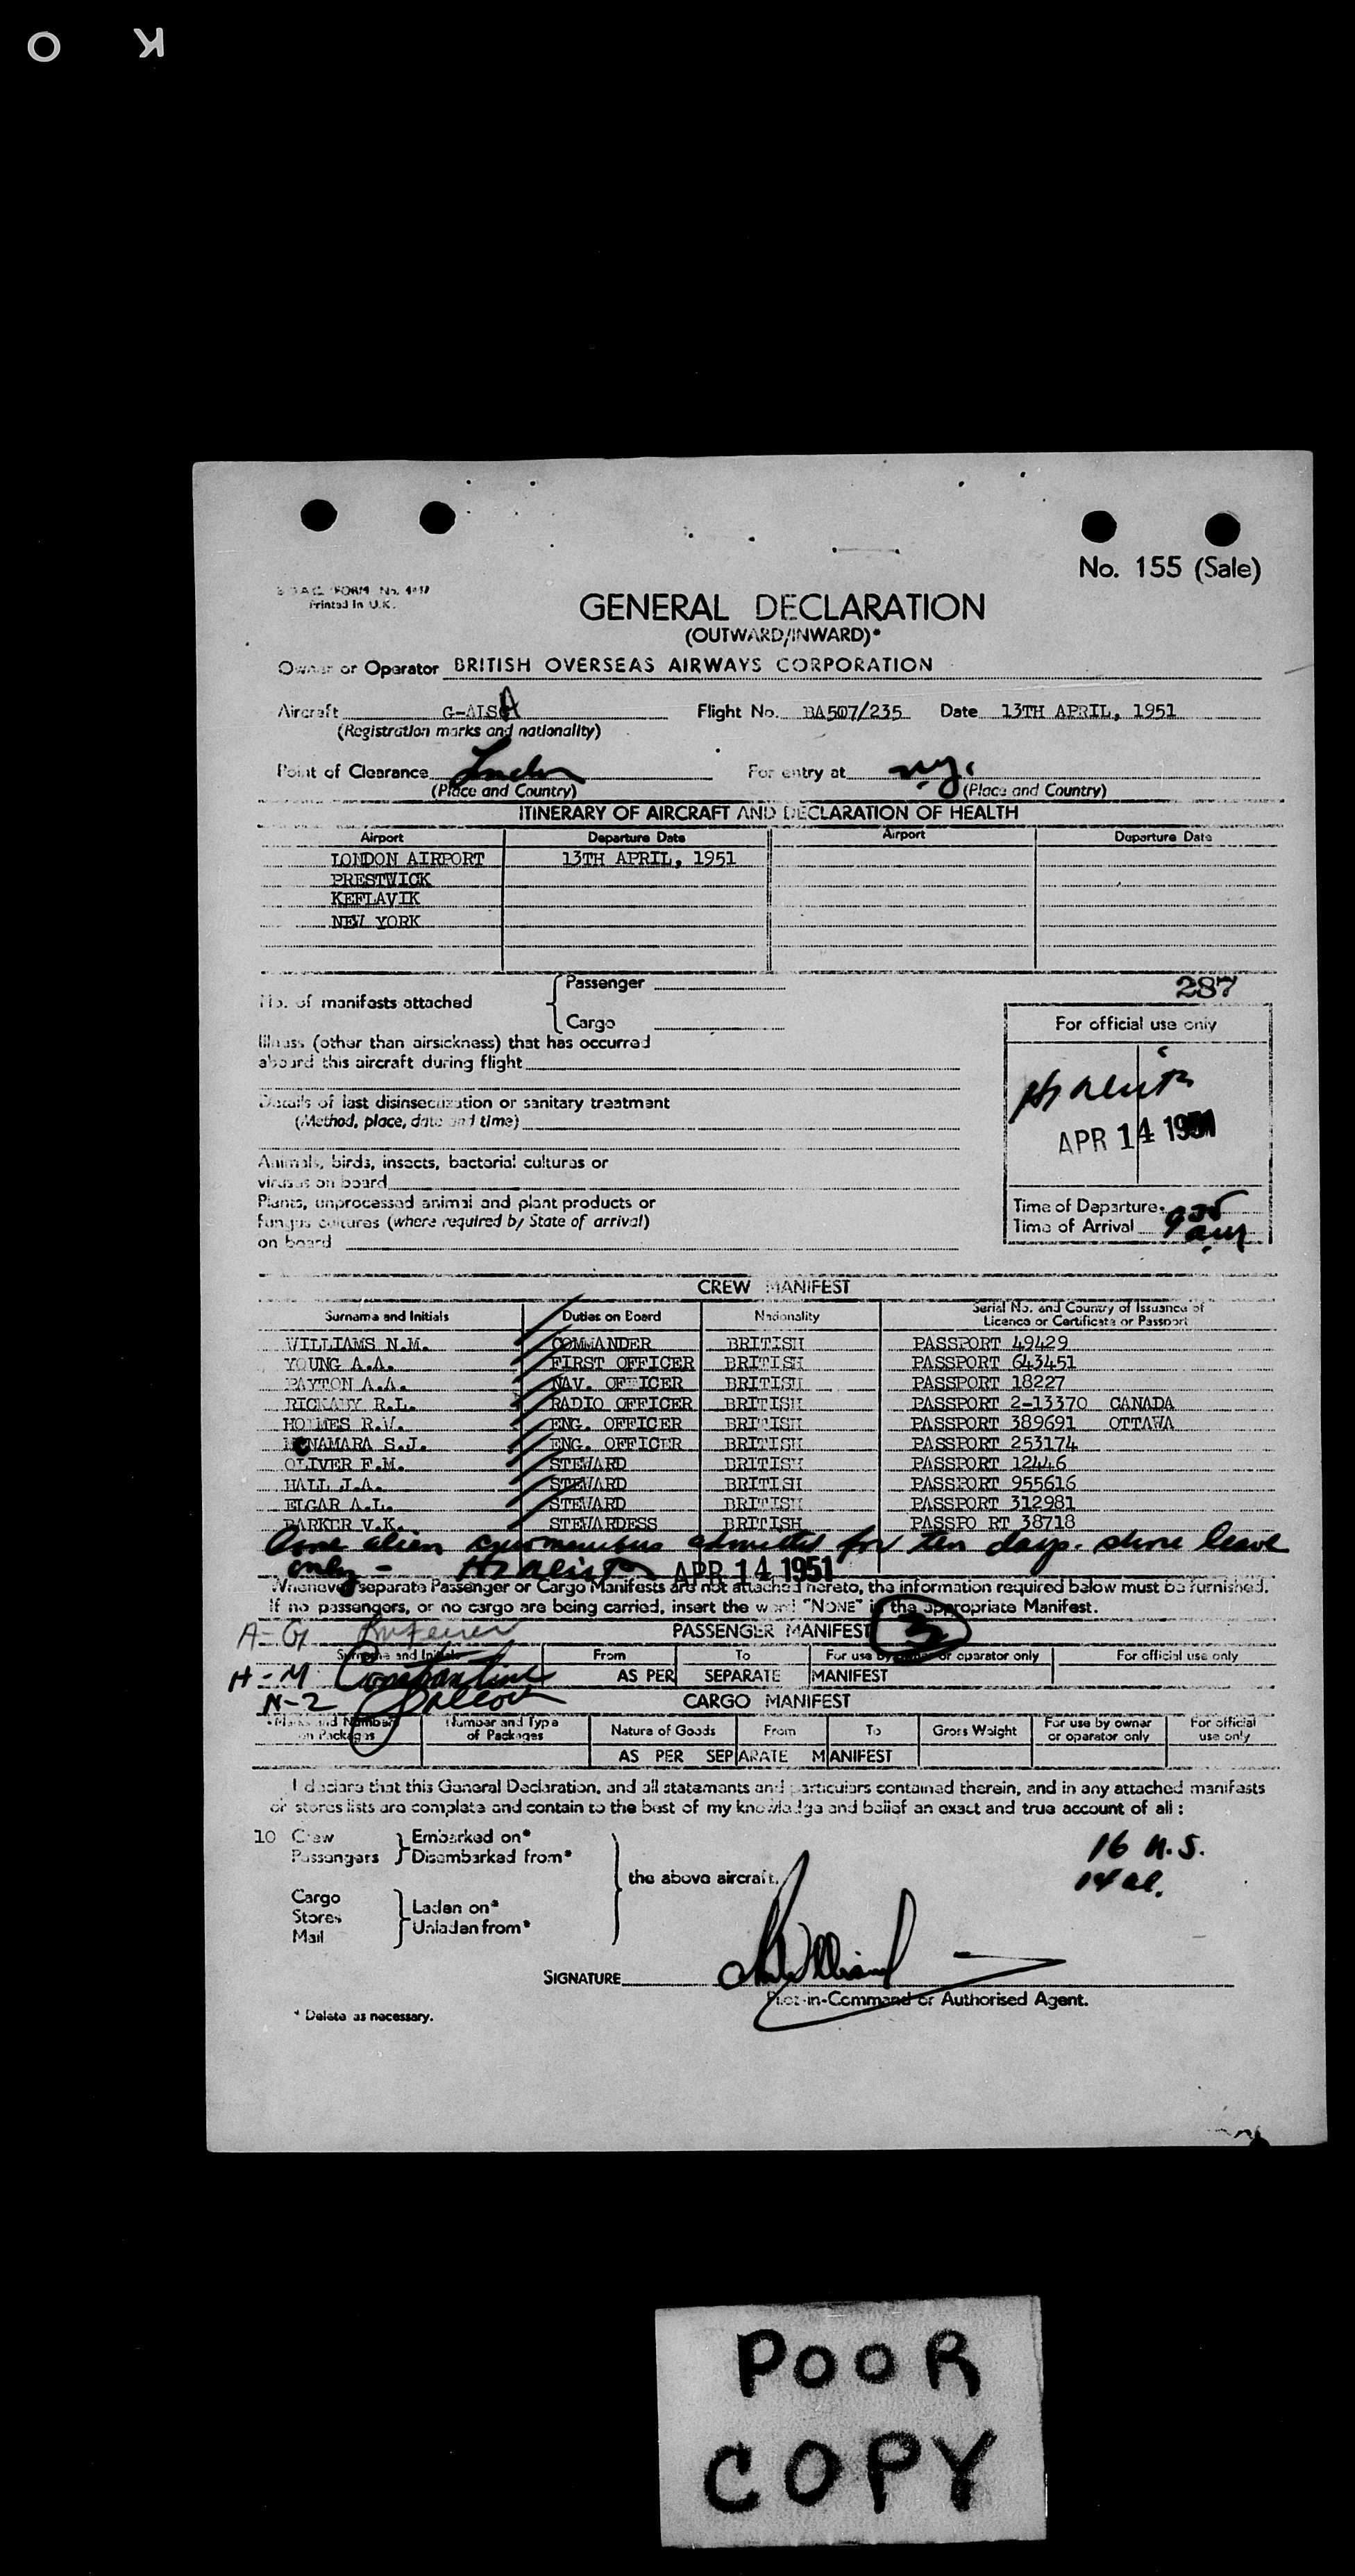 O K
No. 155 (Sale)
Printed in U.K.
GENERAL DECLARATION
(OUTWARD/INWARD)*
Owner or Operator BRITISH OVERSEAS AIRWAYS CORPORATION
Aircraft G-ALSA Flight No. BA507/235 Date 13TH APRIL, 1951
(Registration marks and nationality)
Point of Clearance London For entry at N.Y.
(Place and Country) (Place and Country)
ITINERARY OF AIRCRAFT AND DECLARATION OF HEALTH
Airport Departure Date Airport Departure Date
LONDON AIRPORT 13TH APRIL, 1951
PRESTWICK
KEFLAVIK
NEW YORK
No. of manifests attached
Passenger
Cargo
287
For official use only
Illness (other than airsickness) that has occurred
aboard this aircraft during flight
Details of last disinsectization or sanitary treatment
(Method, place, date and time)
APR 14 1951
Animals, birds, insects, bacterial cultures or
viruses on board
Plants, unprocessed animal and plant products or
fungus cultures (where required by State of arrival)
on board
Time of Departure
Time of Arrival
am
CREW MANIFEST
Surname and Initials Duties on Board Nationality Serial No. and Country of Issuance of
Licence or Certificate or Passport
WILLIAMS N.M. COMMANDER BRITISH PASSPORT 49429
YOUNG A.A. FIRST OFFICER BRITISH PASSPORT 643451
PAYTON A.A. NAV. OFFICER BRITISH PASSPORT 18227
R.L. RADIO OFFICER BRITISH PASSPORT 2-13370 CANADA
HOLMES R.W. ENG. OFFICER BRITISH PASSPORT 389691 OTTAWA
McNAMARA S.J. ENG. OFFICER BRITISH PASSPORT 253174
OLIVER F.M. STEWARD BRITISH PASSPORT 12446
HALL J.A. STEWARD BRITISH PASSPORT 955616
ELGAR A.L. STEWARD BRITISH PASSPORT 312981
PARKER V.K. STEWARDESS BRITISH PASSPO RT 38718
alien crewmembers admitted for ten days shore leave
only - APR 14 1951
Whenever separate Passenger or Cargo Manifests are not attached hereto, the information required below must be furnished.
If no passengers, or no cargo are being carried, insert the word "NONE" in the appropriate Manifest.
A-G PASSENGER MANIFEST 3
Surname and Initials From To For use by owner or operator only For official use only
H-M Constantine AS PER SEPARATE MANIFEST
N-Z CARGO MANIFEST
Marks and Number on Packages Number and Type of Packages Nature of Goods From To Gross Weight For use by owner or operator only For official use only
AS PER SEPARATE MANIFEST
I declare that this General Declaration, and all statements and particulars contained therein, and in any attached manifests
or stores lists are complete and contain to the best of my knowledge and belief an exact and true account of all :
10 Crew
Passengers
Embarked on*
Disembarked from*
Cargo
Stores
Mail
Laden on*
Unladen from*
the above aircraft.
16 U.S.
14 al.
SIGNATURE
Pilot-in-Command or Authorised Agent.
* Delete as necessary.
POOR
COPY